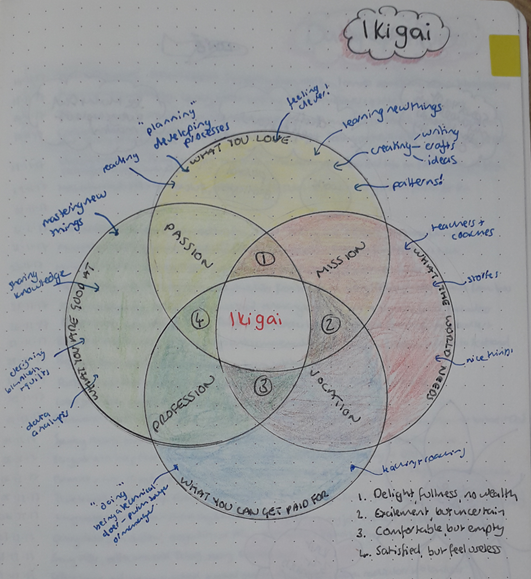 Ikigai
feeling clever!
"planning"
developing
processes
learning new things
reading
creating
writing
crafts
ideas
patterns!
WHAT YOU LOVE
mastering new
things
teachers +
coaches
PASSION
MISSION
1
sharing
knowledge
stories
WHAT YOU ARE GOOD AT
WHAT THE WORLD NEEDS
4
Ikigai
2
designing
nice things
data
analysis
3
PROFESSION
VOCATION
"doing"
being a technical
WHAT YOU CAN GET PAID FOR
1. Delight, fullness, no wealth
2. Excitement, but uncertain
3. Comfortable, but empty
4. Satisfied, but feel useless